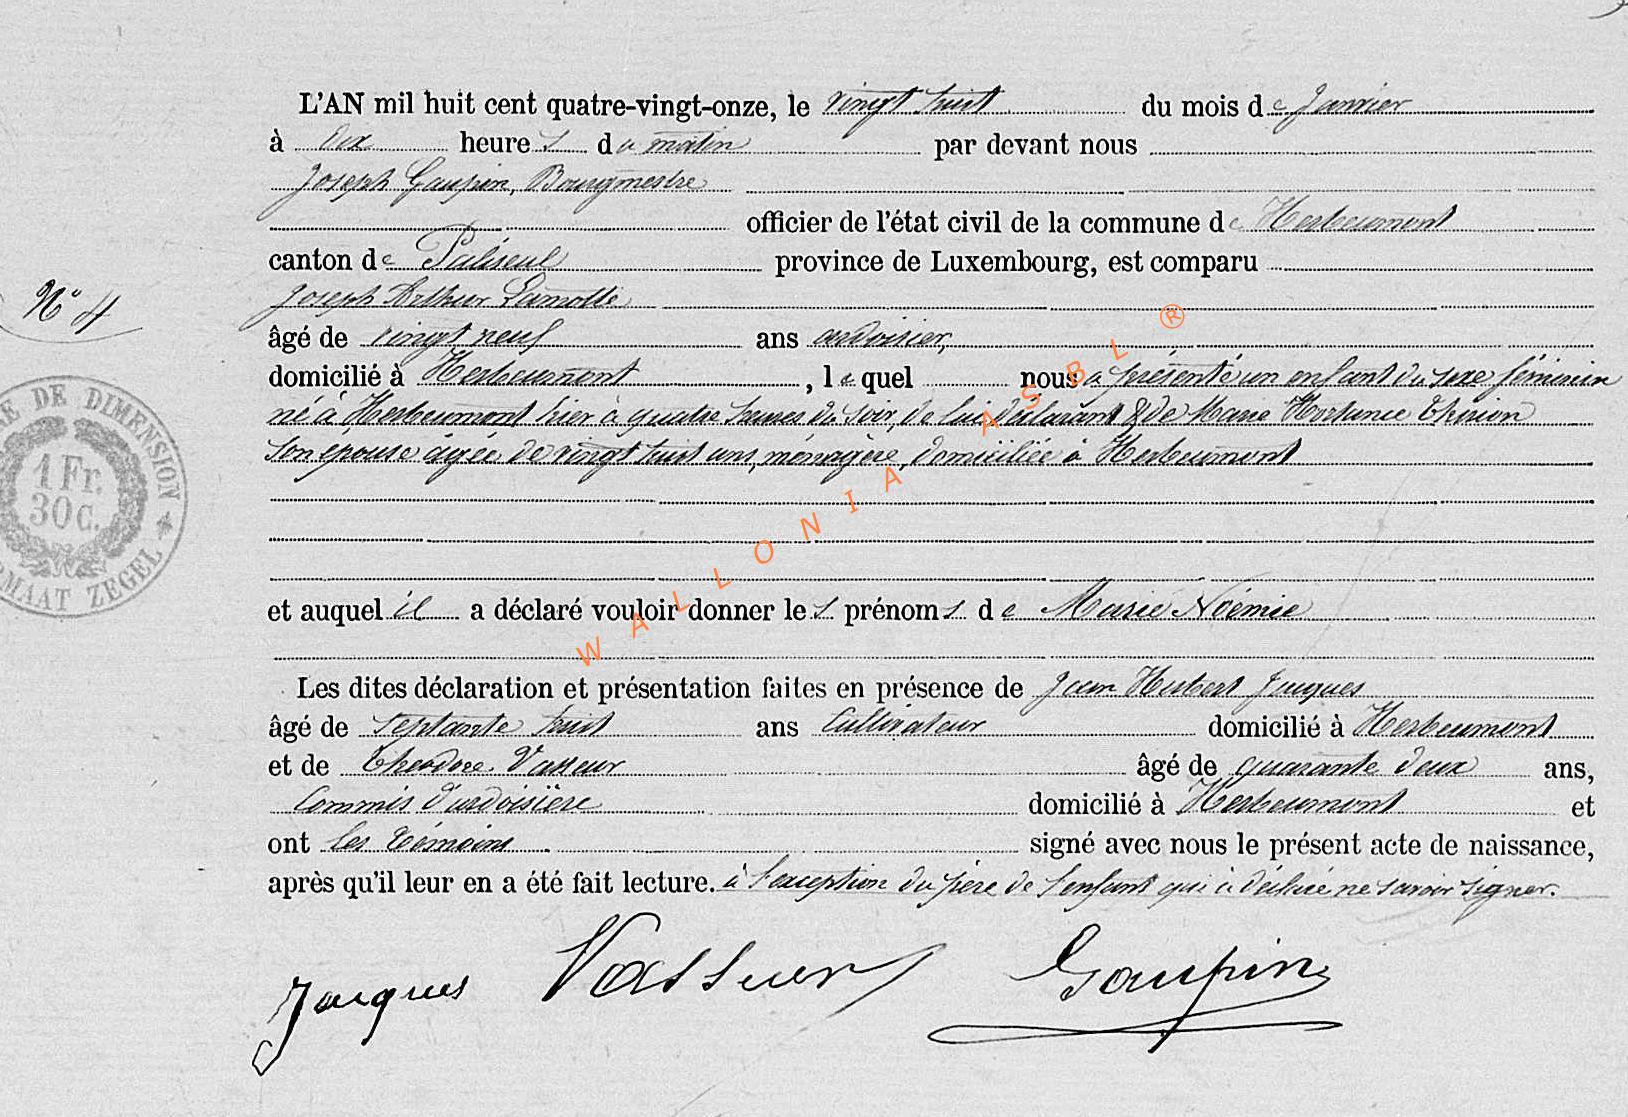 L'AN mil huit cent quatre-vingt-onze, le vingt huit du mois de Janvier
à dix heures du matin par devant nous
Joseph Gaupin, Bourgmestre
officier de l'état civil de la commune de Herbeumont
canton de Paliseul province de Luxembourg, est comparu
Joseph Arthur Lamotte
N° 4
âgé de vingt neuf ans ardoisier,
domicilié à Herbeumont, lequel nous a présenté un enfant du sexe féminin
né à Herbeumont hier à quatre heures du soir, de lui déclarant & de Marie Hortance Thirion
son épouse âgée de vingt huit ans, ménagère, domiciliée à Herbeumont
DE DIMENSION
1 Fr.
30 C.
MAAT ZEGEL
WALLONIA ASBL ®
et auquel il a déclaré vouloir donner les prénoms de Marie Noémie
Les dites déclaration et présentation faites en présence de Jean Hubert Jacques
âgé de septante huit ans Cultivateur domicilié à Herbeumont
et de Theodore Vasseur âgé de quarante deux ans,
Commis d'ardoisière domicilié à Herbeumont et
ont les témoins signé avec nous le présent acte de naissance,
après qu'il leur en a été fait lecture. à l'exception du père de l'enfant qui a déclaré ne savoir signer.
Jacques Vasseur Gaupin